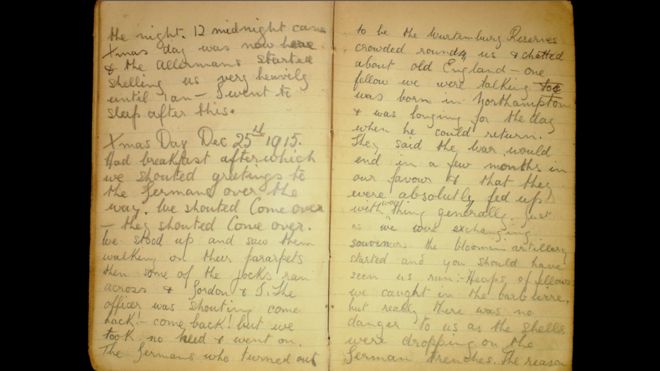 the night. 12 midnight came
Xmas day was now here
& the Allemans started
shelling us very heavily
until 1am – I went to
sleep after this.
Xmas Day Dec 25th 1915.
Had breakfast after which
we shouted greetings to
the Germans over the
way. We shouted Come over
– they shouted Come over.
We stood up and saw them
walking on their parapets
then some of the Jocks ran
across & Gordon & I. The
officer was shouting come
back! – come back! but we
took no heed & went on.
The Germans who turned out
to be the Wurtemburg Reserves
crowded round us & chatted
about old England – one
fellow we were talking to
was born in Northampton
& was longing for the day
when he could return.
They said the war would
end in a few months in
our favour & that they
were absolutly fed up
with thing generally. Just
as we were exchanging
souvenirs the bloomin artillery
started and you should have
seen us run. Heaps of fellows
we caught in the barb wire.
but really there was no
danger to us as the shells
were dropping on the
German trenches. The reason